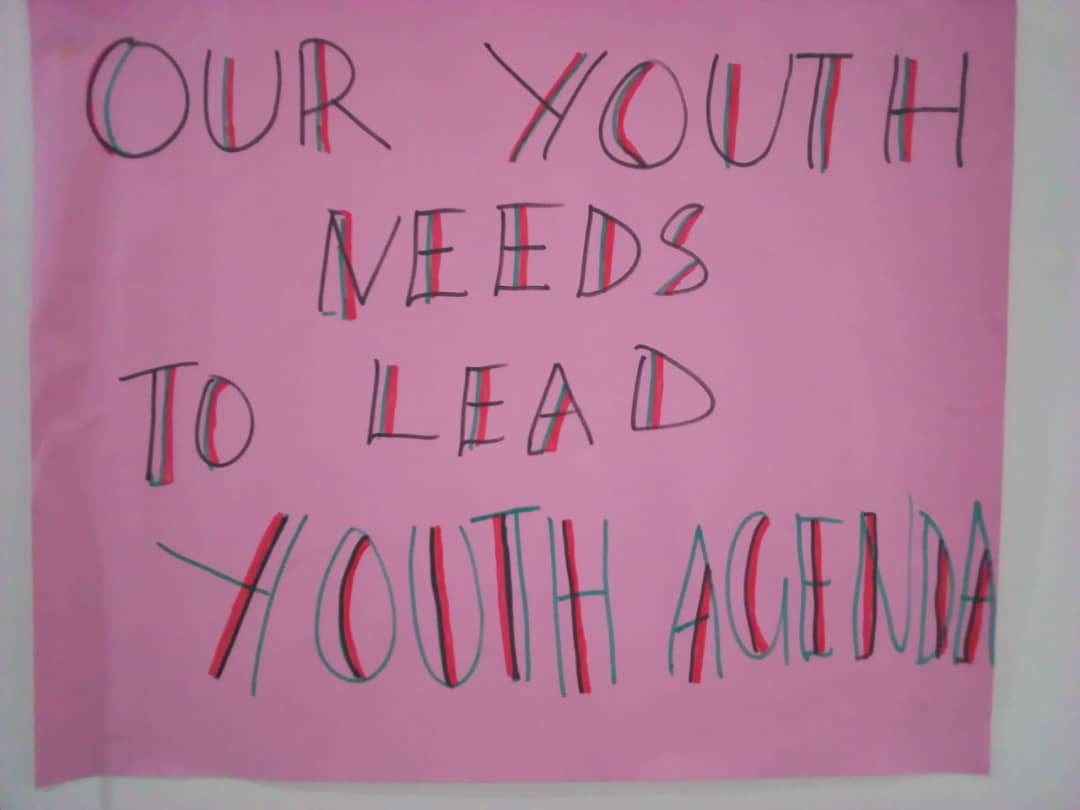 OUR YOUTH
NEEDS
TO LEAD
YOUTH AGENDA